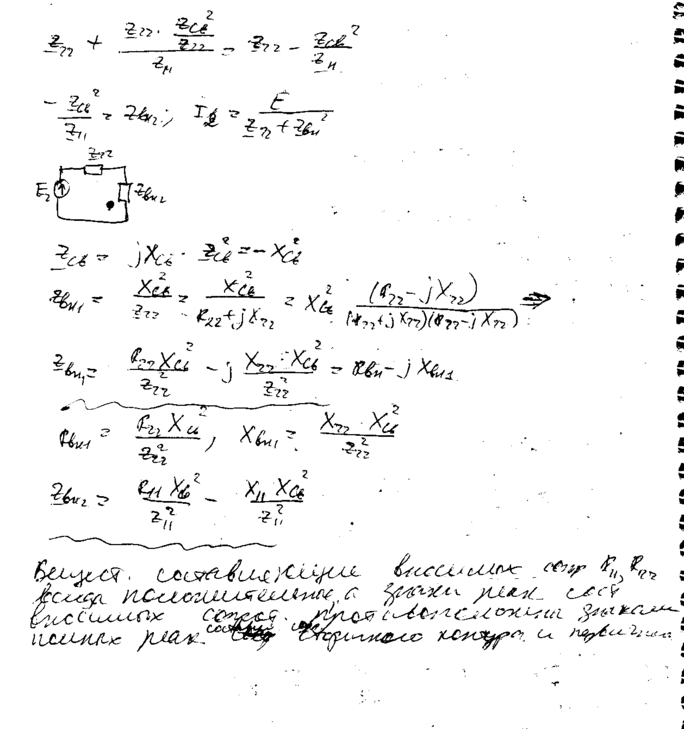 Z₂₂ + (Z₂₂ · Zсв²/Z₂₂)/Z₁₁ = Z₂₂ − Zсв²/Z₁₁
− Zсв²/Z₁₁ = Zвн₂; I₂ = E/(Z₂₂ + Zвн²)
Z₂₂
E₂ Zвн₂
Zсв = jXсв · Zсв² = −Xсв²
Zвн₁ = Xсв²/Z₂₂ = Xсв²/(R₂₂ + jX₂₂) = Xсв² (R₂₂ − jX₂₂)/((R₂₂ + jX₂₂)(R₂₂ − jX₂₂)) ⇒
Zвн₁ = R₂₂Xсв²/Z₂₂² − j X₂₂ · Xсв²/Z₂₂² = Rвн − jXвн₁
Rвн₁ = R₂₂ Xсв²/Z₂₂², Xвн₁ = X₂₂ · Xсв²/Z₂₂²
Zвн₂ = R₁₁ Xсв²/Z₁₁² − X₁₁ Xсв²/Z₁₁²
Вещест. составляющие вносимых сопр R₁₁, R₂₂
всегда положительные, а знаки реак сост
вносимых сопрот. противоположны знакам
полных реак. вторичного контура и первичн